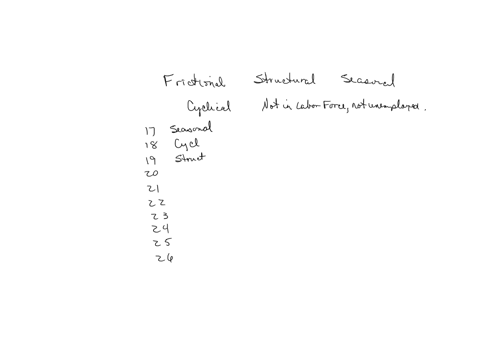 Frictional Structural Seasonal
Cyclical Not in Labor Force, not unemployed.
17 Seasonal
18 Cycl
19 Struct
20
21
22
23
24
25
26